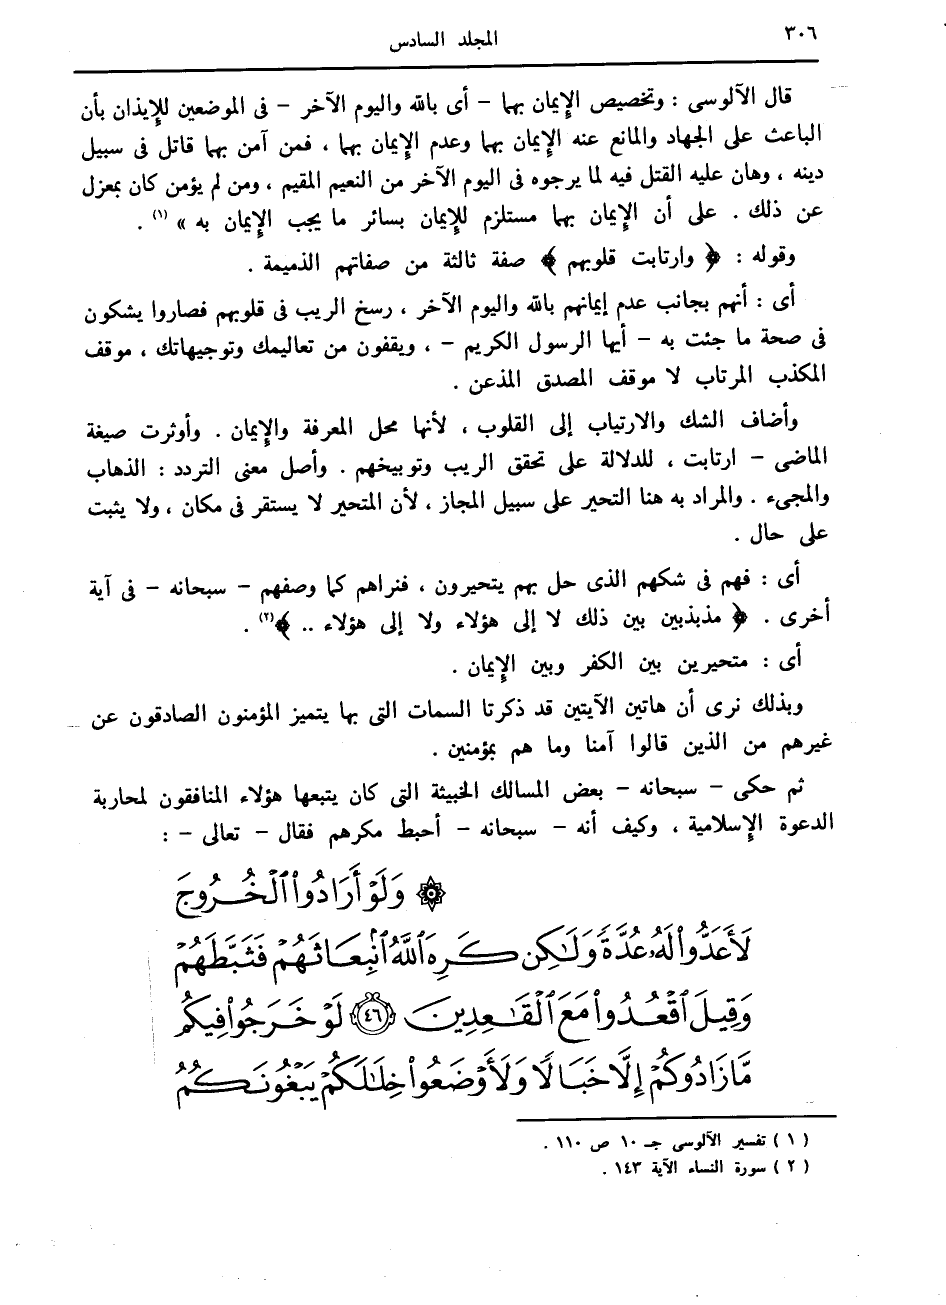 ٣٠٦
المجلد السادس
قال الآلوسى : وتخصيص الإيمان بهما – أى بالله واليوم الآخر – فى الموضعين للإيذان بأن
الباعث على الجهاد والمانع عنه الإيمان بهما وعدم الإيمان بهما ، فمن آمن بهما قاتل فى سبيل
دينه ، وهان عليه القتل فيه لما يرجوه فى اليوم الآخر من النعيم المقيم ، ومن لم يؤمن كان بمعزل
عن ذلك . على أن الإيمان بهما مستلزم للإيمان بسائر ما يجب الإيمان به » (١) .
وقوله : ﴿ وارتابت قلوبهم ﴾ صفة ثالثة من صفاتهم الذميمة .
أى : أنهم بجانب عدم إيمانهم بالله واليوم الآخر ، رسخ الريب فى قلوبهم فصاروا يشكون
فى صحة ما جئت به – أيها الرسول الكريم – ، ويقفون من تعاليمك وتوجيهاتك ، موقف
المكذب المرتاب لا موقف المصدق المذعن .
وأضاف الشك والارتياب إلى القلوب ، لأنها محل المعرفة والإيمان . وأوثرت صيغة
الماضى – ارتابت ، للدلالة على تحقق الريب وتوبيخهم . وأصل معنى التردد : الذهاب
والمجىء . والمراد به هنا التحير على سبيل المجاز ، لأن المتحير لا يستقر فى مكان ، ولا يثبت
على حال .
أى : فهم فى شكهم الذى حل بهم يتحيرون ، فنراهم كما وصفهم – سبحانه – فى آية
أخرى . ﴿ مذبذبين بين ذلك لا إلى هؤلاء ولا إلى هؤلاء .. ﴾(٢) .
أى : متحيرين بين الكفر وبين الإيمان .
وبذلك نرى أن هاتين الآيتين قد ذكرتا السمات التى بها يتميز المؤمنون الصادقون عن
غيرهم من الذين قالوا آمنا وما هم بمؤمنين .
ثم حكى – سبحانه – بعض المسالك الخبيثة التى كان يتبعها هؤلاء المنافقون لمحاربة
الدعوة الإسلامية ، وكيف أنه – سبحانه – أحبط مكرهم فقال – تعالى – :
۞ وَلَوْ أَرَادُوا۟ ٱلْخُرُوجَ
لَأَعَدُّوا۟ لَهُۥ عُدَّةً وَلَٰكِن كَرِهَ ٱللَّهُ ٱنۢبِعَاثَهُمْ فَثَبَّطَهُمْ
وَقِيلَ ٱقْعُدُوا۟ مَعَ ٱلْقَٰعِدِينَ ٤٦ لَوْ خَرَجُوا۟ فِيكُم
مَّا زَادُوكُمْ إِلَّا خَبَالًا وَلَأَوْضَعُوا۟ خِلَٰلَكُمْ يَبْغُونَكُمُ
( ١ ) تفسير الآلوسى جـ ١٠ ص ١١٠ .
( ٢ ) سورة النساء الآية ١٤٣ .